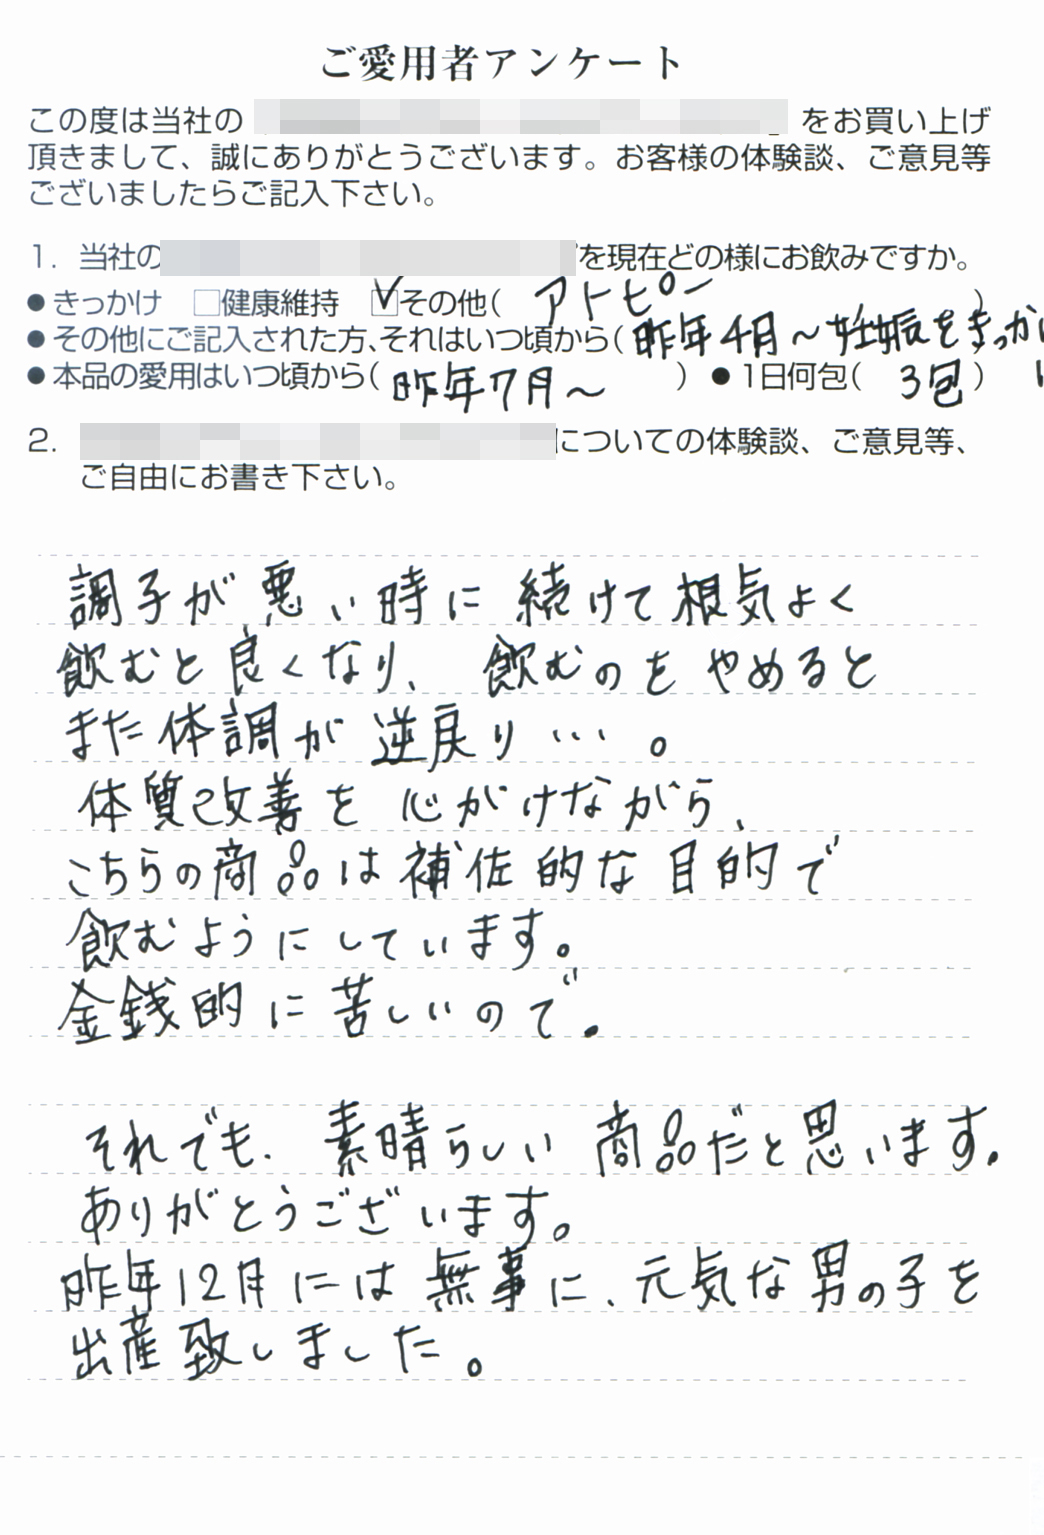 ご愛用者アンケート
この度は当社の をお買い上げ
頂きまして、誠にありがとうございます。お客様の体験談、ご意見等
ございましたらご記入下さい。
1. 当社の を現在どの様にお飲みですか。
● きっかけ □健康維持 ☑その他( アトピー )
● その他にご記入された方、それはいつ頃から( 昨年4月～妊娠をきっか
● 本品の愛用はいつ頃から( 昨年7月～ ) ● 1日何包( 3包 )
2. についての体験談、ご意見等、
ご自由にお書き下さい。
調子が悪い時に 続けて根気よく
飲むと良くなり、 飲むのをやめると
また体調が逆戻り…。
体質改善を心がけながら、
こちらの商品は補佐的な目的で
飲むようにしています。
金銭的に苦しいので。
それでも、素晴らしい商品だと思います。
ありがとうございます。
昨年12月には無事に、元気な男の子を
出産致しました。